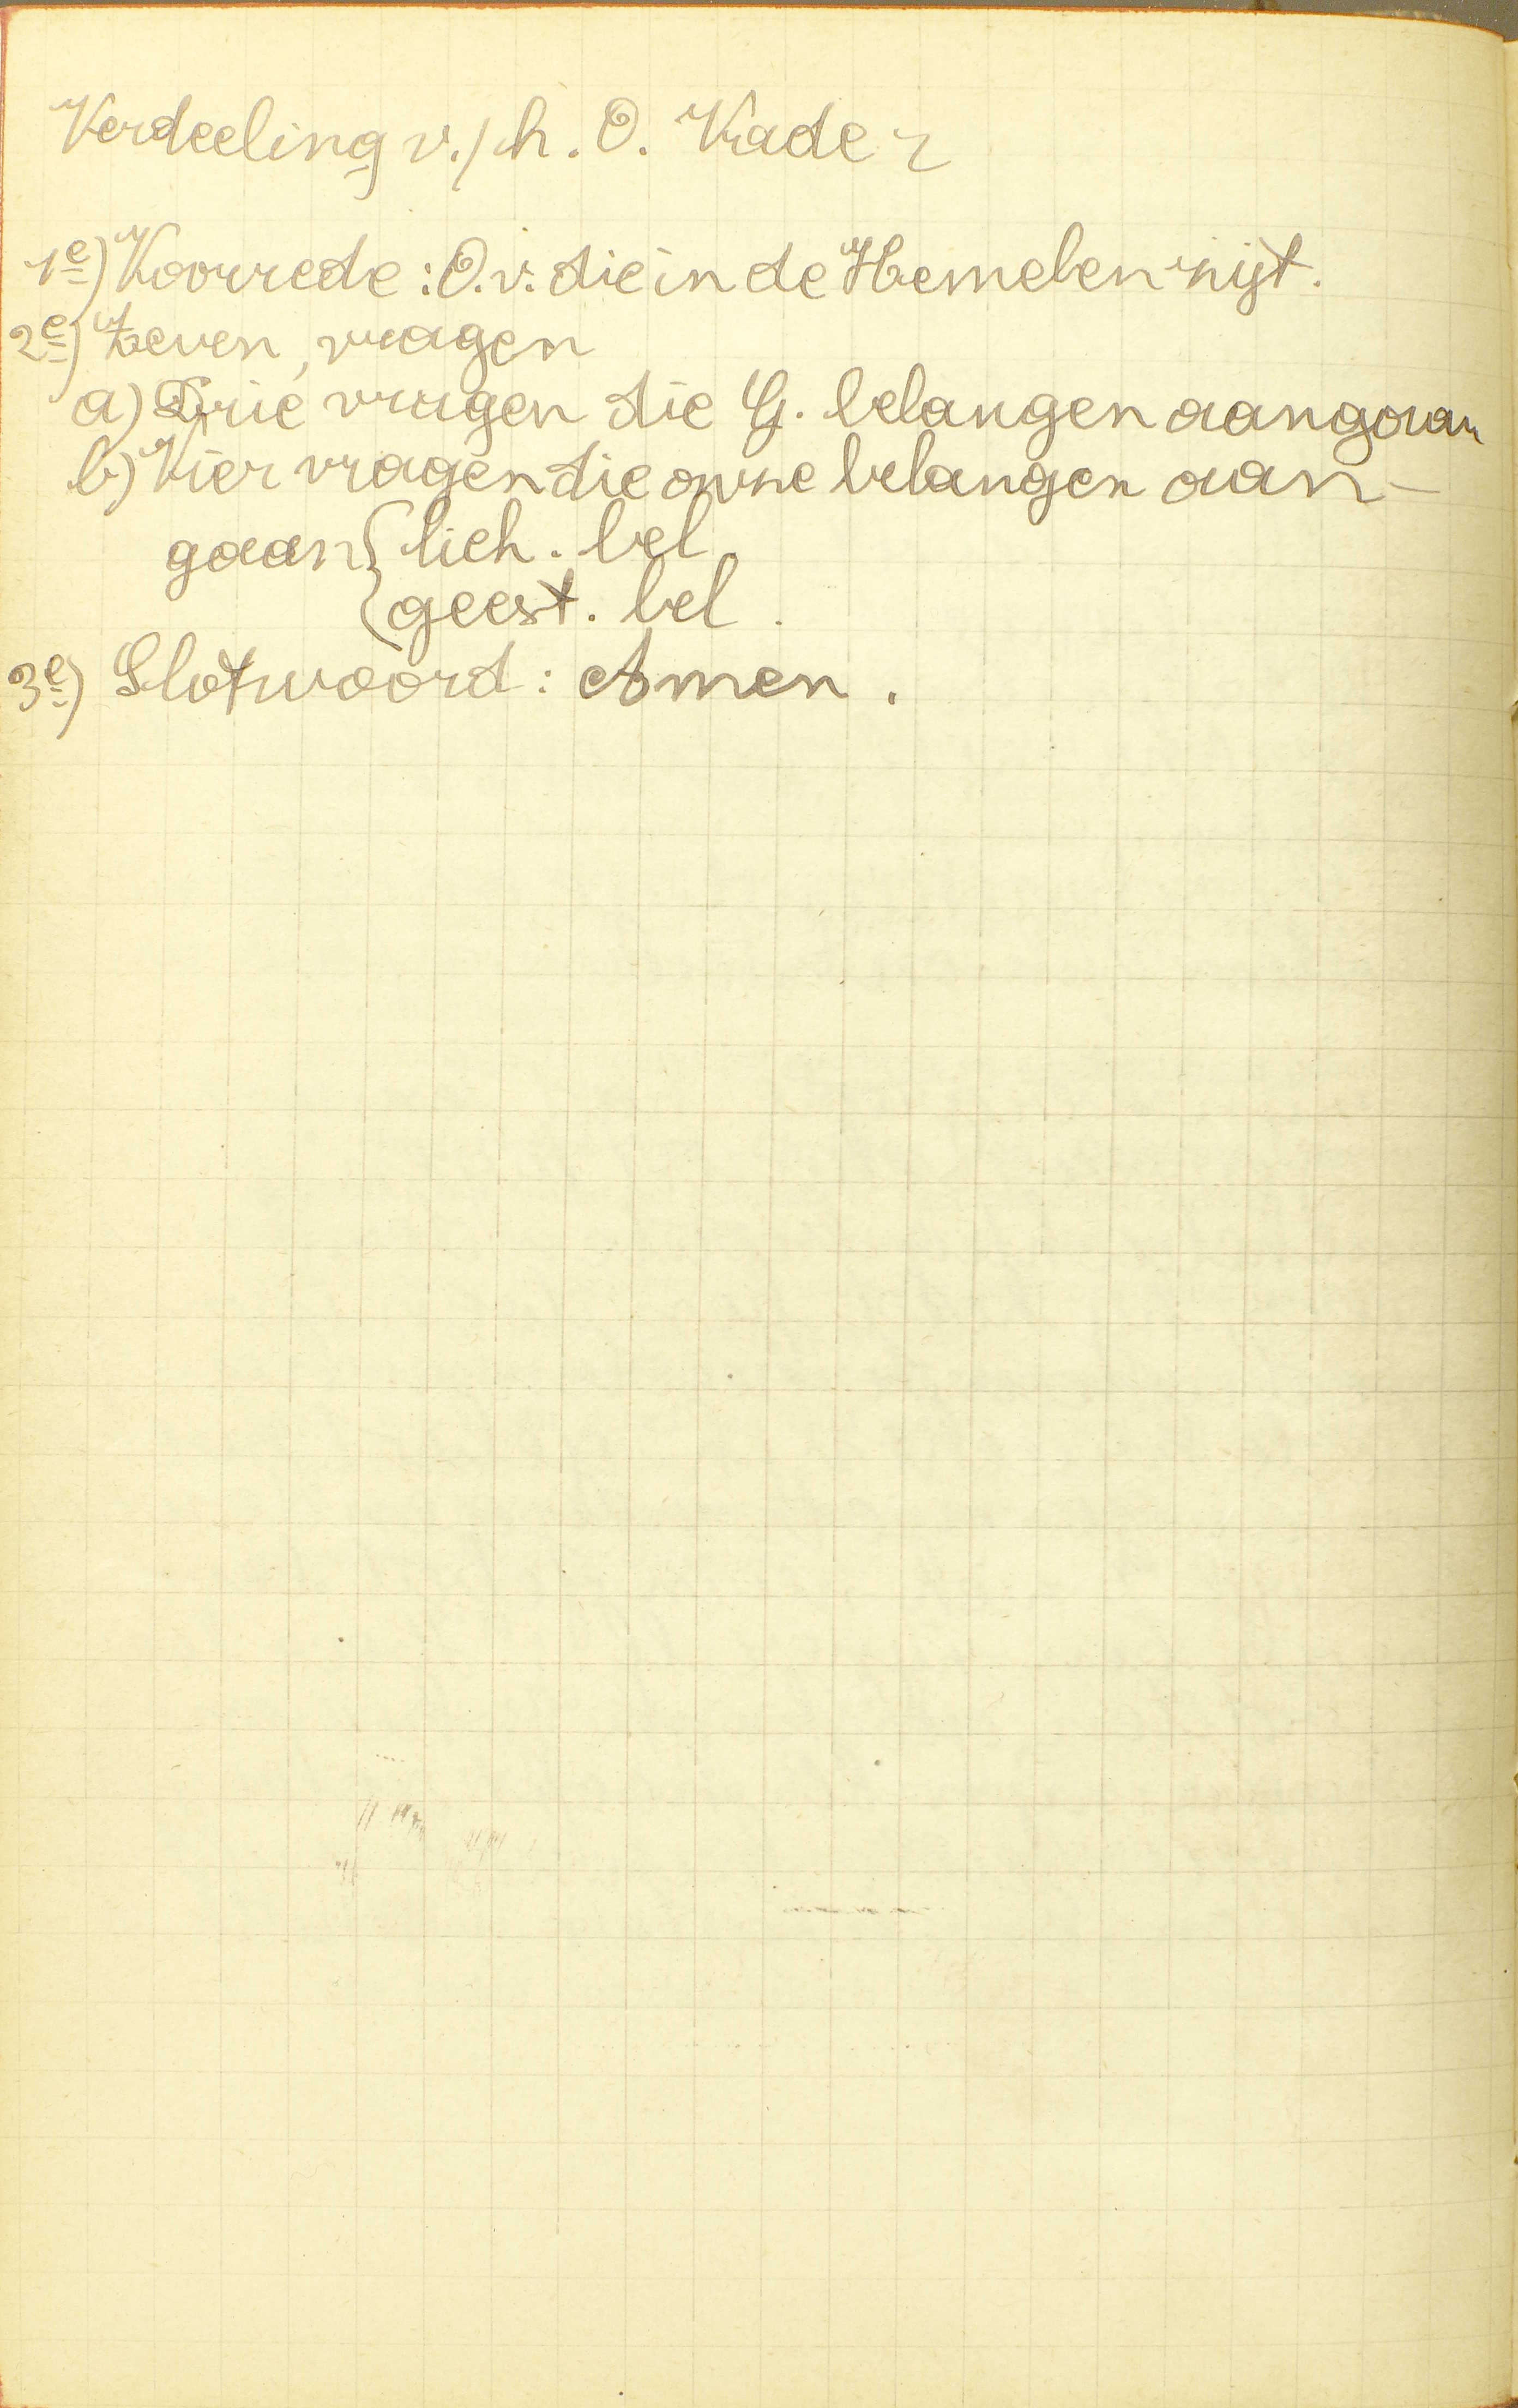 Verdeeling v./h. O. Vader
1e) Voorrede: O.v. die in de Hemelen zijt.
2e) Zeven vragen
a) Drie vragen die G. belangen aangaan
b) Vier vragen die onze belangen aan-
gaan { lich. bel.
{ geest. bel.
3e) Slotwoord: Amen.